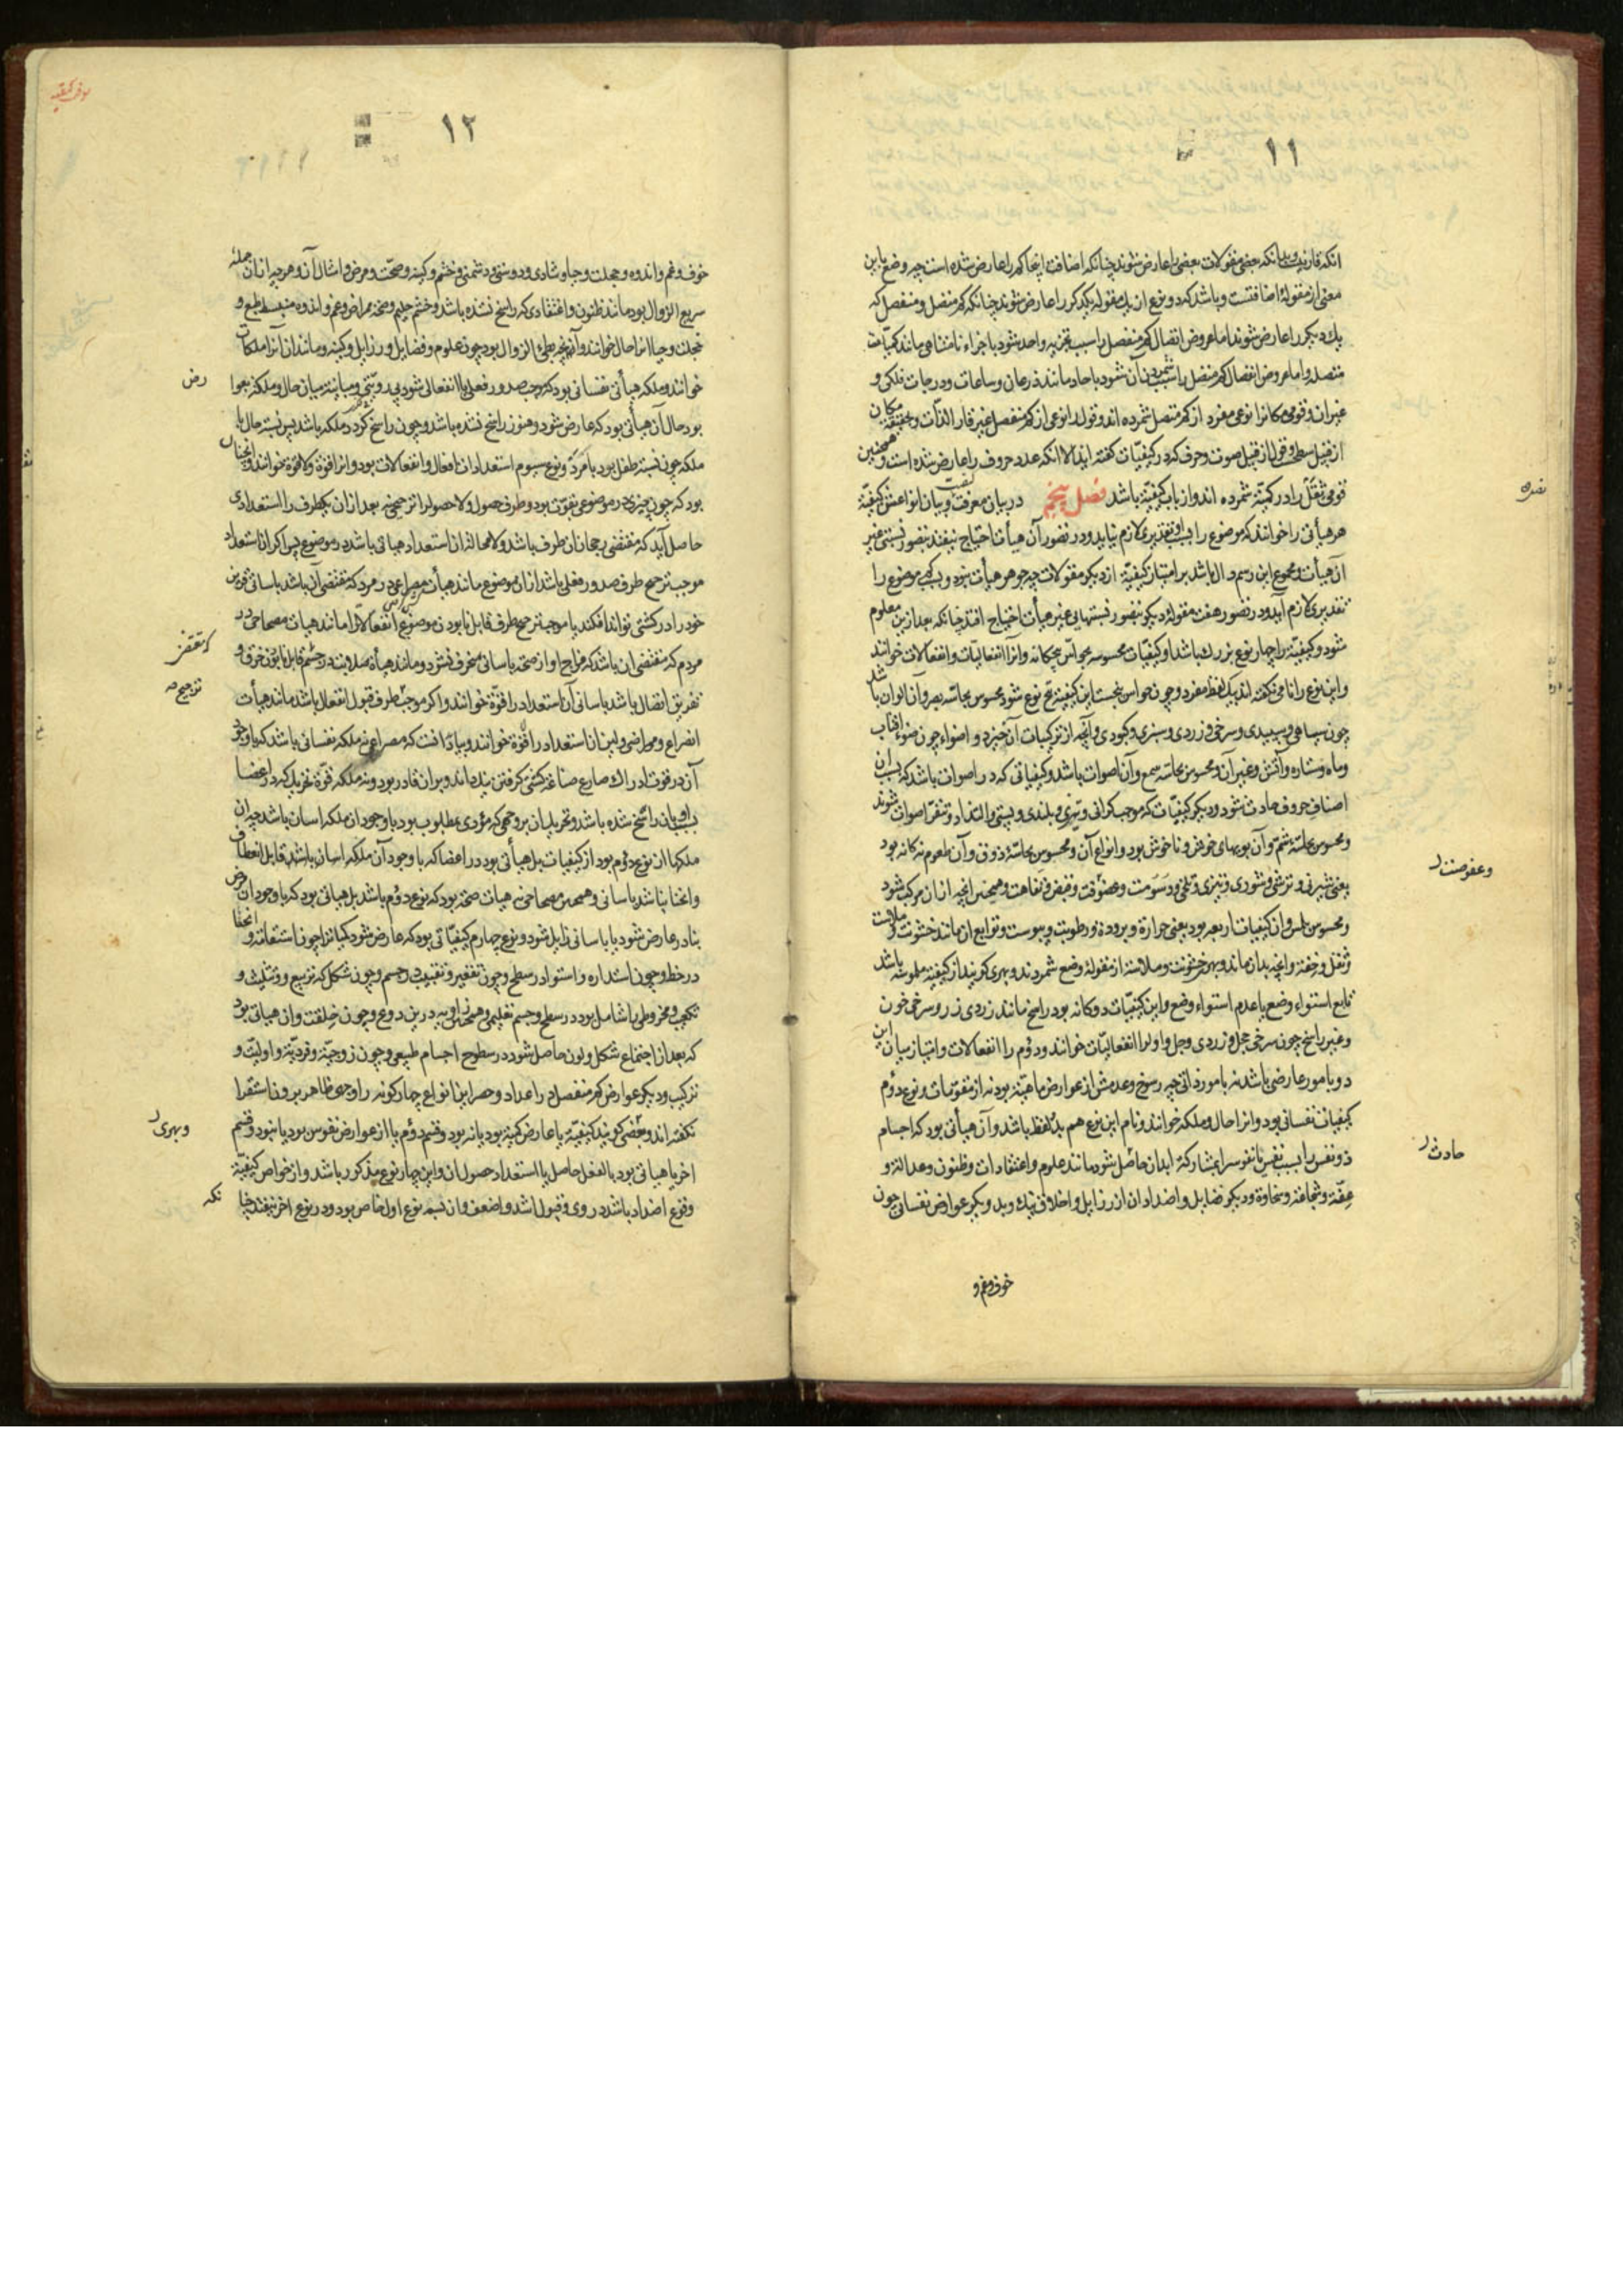 ١١
انکه قار نیست و بدانکه بعضی مقولات بعضی را عارض شوند چنانکه اضافت اینجا کم را عارض شده است چه وضع باین
معنی از مقولهٔ اضافتست و باشد که دو نوع از یک مقوله یکدیگر را عارض شوند چنانکه کم متصل و منفصل که
یک دیگر را عارض شوند اما عروض اتصال کم منفصل را بسبب تجزیه واحد شود باجزاء نامتناهی مانند کمیات
متصله و اما عروض انفصال کم متصل را بسبب شمردن آن شود باحاد مانند ذرعان و ساعات و درجات فلکی و
غیر ان و قومی مکان را نوعی مفرد از کم متصل شمرده اند و قول را نوعی از کم منفصل غیر قار الذات و بحقیقت مکان
از قبیل سطح و قول از قبیل صوت و حرف که در کیفیات گفته اید الا انکه عدد حروف را عارض شده است و همچنین
قومی ثقل را در کمیة شمرده اند و از باب کیفیة باشد فصل پنجم در بیان معرفت کیفیت و بیان انواعش کیفیة
هر هیأتی را خوانند که موضوع را بسبب او تقدیری لازم نیاید و در تصور آن هیأت احتیاج نیفتد بتصور نسبتی غیر
آن هیأت و مجموع این رسم دال باشد بر امتیاز کیفیة از دیگر مقولات چه جوهر هیأت نبود و بسبب کمی موضوع را
تقدیری لازم آید و در تصور هفت مقولهٔ دیگر بتصور نسبتهایی غیر هیأت احتیاج افتد چنانکه بعد ازین معلوم
شود و کیفیة را چهار نوع بزرک باشد اول کیفیات محسوسه بحواس پنجکانه و آنرا انفعالیات و انفعالات خوانند
و این نوع را نامی نگفته اند بیک لفظ مفرد و چون حواس پنجست این کیفیة پنج نوع شود محسوس بحاسه بصر و آن الوان باشد
چون سیاهی و سپیدی و سرخی و زردی و سبزی و کبودی و آنچه از ترکیبات آن خیزد و اضواء چون ضوء افتاب
و ماه و ستاره و آتش و غیر آن و محسوس بحاسه سمع و آن اصوات باشد و کیفیاتی که در اصوات باشد که بسبب آن
اصناف حروف حادث شود و دیگر کیفیات که موجب گرانی و تیزی و بلندی و پستی و التذاذ و تنفر اصوات شوند
و محسوس بحاسهٔ شم و آن بویهای خوش و ناخوش بود و انواع آن و محسوس بحاسهٔ ذوق و آن طعوم نه کانه بود
یعنی شیرنی و ترشی و شوری و تیزی و تلخی و دسومت و عفوصت و قبض و تفاهت و همچنین انچه از ان مرکب شود
و محسوس بلمس و ان کیفیات اربعه بود یعنی حرارة و برودة و رطوبت و یبوست و توابع ان مانند خشونت و ملاست
و ثقل و خفة و انچه بدان ماند و بهری خشونت و ملاسة از مقولهٔ وضع شمردند و بهری گویند از کیفیة ملموسه باشد
تابع استواء وضع یا عدم استواء وضع و این کیفیات دو گانه بود راسخ مانند زردی زر و سرخی خون
و غیر راسخ چون سرخی خجل و زردی وجل و اول را انفعالیات خوانند و دوم را انفعالات و امتیاز میان این
دو بامور عارضی باشد نه بامور ذاتی چه رسوخ و عدمش از عوارض ماهیة بود نه از مقومات و نوع دوم
کیفیات نفسانی بود و انرا حال و ملکه خوانند و نام این نوع هم بدین دو لفظ باشد و آن هیأتی بود که اجسام
ذو نفس را بسبب نفس یا نفوس را بمشارکة ابدان حاصل شود مانند علوم و اعتقادات و ظنون و عدالة و
عفة و شجاعة و سخاوة و دیگر فضایل و اضداد ان از رذایل و اخلاق نیک و بد و دیگر عوارض نفسانی چون
خوف و غم و
وعفوصت
حادث
١٢
خوف و غم و اندوه و خجلت و حیا و شادی و دوستی و دشمنی و خشم و کینه و صحت و مرض و امثال آن و هر چه از ان جمله
سریع الزوال بود مانند ظنون و اعتقادی که راسخ نشده باشد و خشم حلیم و صحة ممراض و غم و اندوه منبسط طبع و
خجلت و حیا انرا حال خوانند و آنچه بطئ الزوال بود چون علوم و فضایل و رذایل و کینه و مانند ان آنرا ملکات
خوانند و ملکه هیأتی نفسانی بود که موجب صدور فعلی یا انفعالی شود بی رویتی و مباینة میان حال و ملکه بعوا
بود حال آن هیأتی بود که عارض شود و هنوز راسخ نشده باشد و چون راسخ گردد ملکه باشد پس نسبة حال با
ملکه چون نسبة طفل بود با مرد و نوع سیوم استعدادات افعال و انفعالات بود و انرا قوة و لاقوة خوانند و انچنان
بود که چون چیزی در موضوعی بقوت بود و طرف حصول و لاحصول را ترجیحی نه بعد از ان یکطرف را استعدادی
حاصل آید که مقتضی رجحان ان طرف باشد و لامحاله ان استعداد هیاتی باشد در موضوع پس اگر ان استعداد
موجب ترجح طرف صدور فعلی باشد از ان موضوع مانند هیأت مصراعی در مرد که مقتضی آن باشد باسانی قرین
خود را در کشتی تواند افکند یا موجب ترجح طرف قابل نابودن موضوع انفعالی را مانند هیات مصحاحی در
مردم که مقتضی ان باشد که مزاج او از صحة باسانی منحرف نشود و مانند هیأة صلابت در جسم قابل نابودن خرق و
تفریق اتصال باشد باسانی آن استعداد را قوة خوانند و اگر موجب طرف قبول انفعال باشد مانند هیأت
انصراع و ممراضی و لین ان استعداد را لاقوة خوانند و بباید دانست که مصراعی نه ملکه نفسانی باشد که باوجود
آن در قوت ادراک صارع صناعة کشتی گرفتن نیک داند و بران قادر بود و نه ملکه قوة تحریک که در اعضا
بسبب او بیان راسخ شده باشد و تحریک ان بر وجهی که مؤدی بمطلوب بود باوجود ان ملکه اسان باشد چه ان
ملکها از نوع دوم بود از کیفیات بل هیأتی بود در اعضا که با وجود آن ملکه اسان باشد قابل انعطاف
و انحنا نباشد باسانی و همچنین مصحاحی نه هیات صحة بود که نوع دوم باشد بل هیاتی بود که با وجود ان مرض
بنادر عارض شود یا باسانی زایل شود و نوع چهارم کیفیاتی بود که عارض شود کمیات را چون استقامة و انحنا
در خط و چون استداره و استوا در سطح و چون تقعیر و تقبیب در جسم و چون شکل که تربیع و تثلیث و
تکعیب و مخروطی را شامل بود در سطح و جسم تعلیمی و همچنین زاویه درین دو نوع و چون خلقت و ان هیاتی بود
که بعد از اجتماع شکل و لون حاصل شود در سطوح اجسام طبیعی و چون زوجیة و فردیة و اولیت و
ترکیب و دیگر عوارض کم منفصل در اعداد و حصر این انواع چهار گونه را وجهی ظاهر برون استقرا
نگفته اند و بعضی گویند کیفیة یا عارض کمیة بود یا نه بود و قسم دوم یا از عوارض نفوس بود یا نبود و قسم
اخر یا هیاتی بود بالفعل حاصل یا استعداد حصول ان و این چهار نوع مذکور باشد و از خواص کیفیة
وقوع اضداد باشد در وی و قبول اشد و اضعف و ان نسبة نوع اول خاص بود و در نوع اخر نیفتد چنا
رض
ترجیح
وبهری
نکه